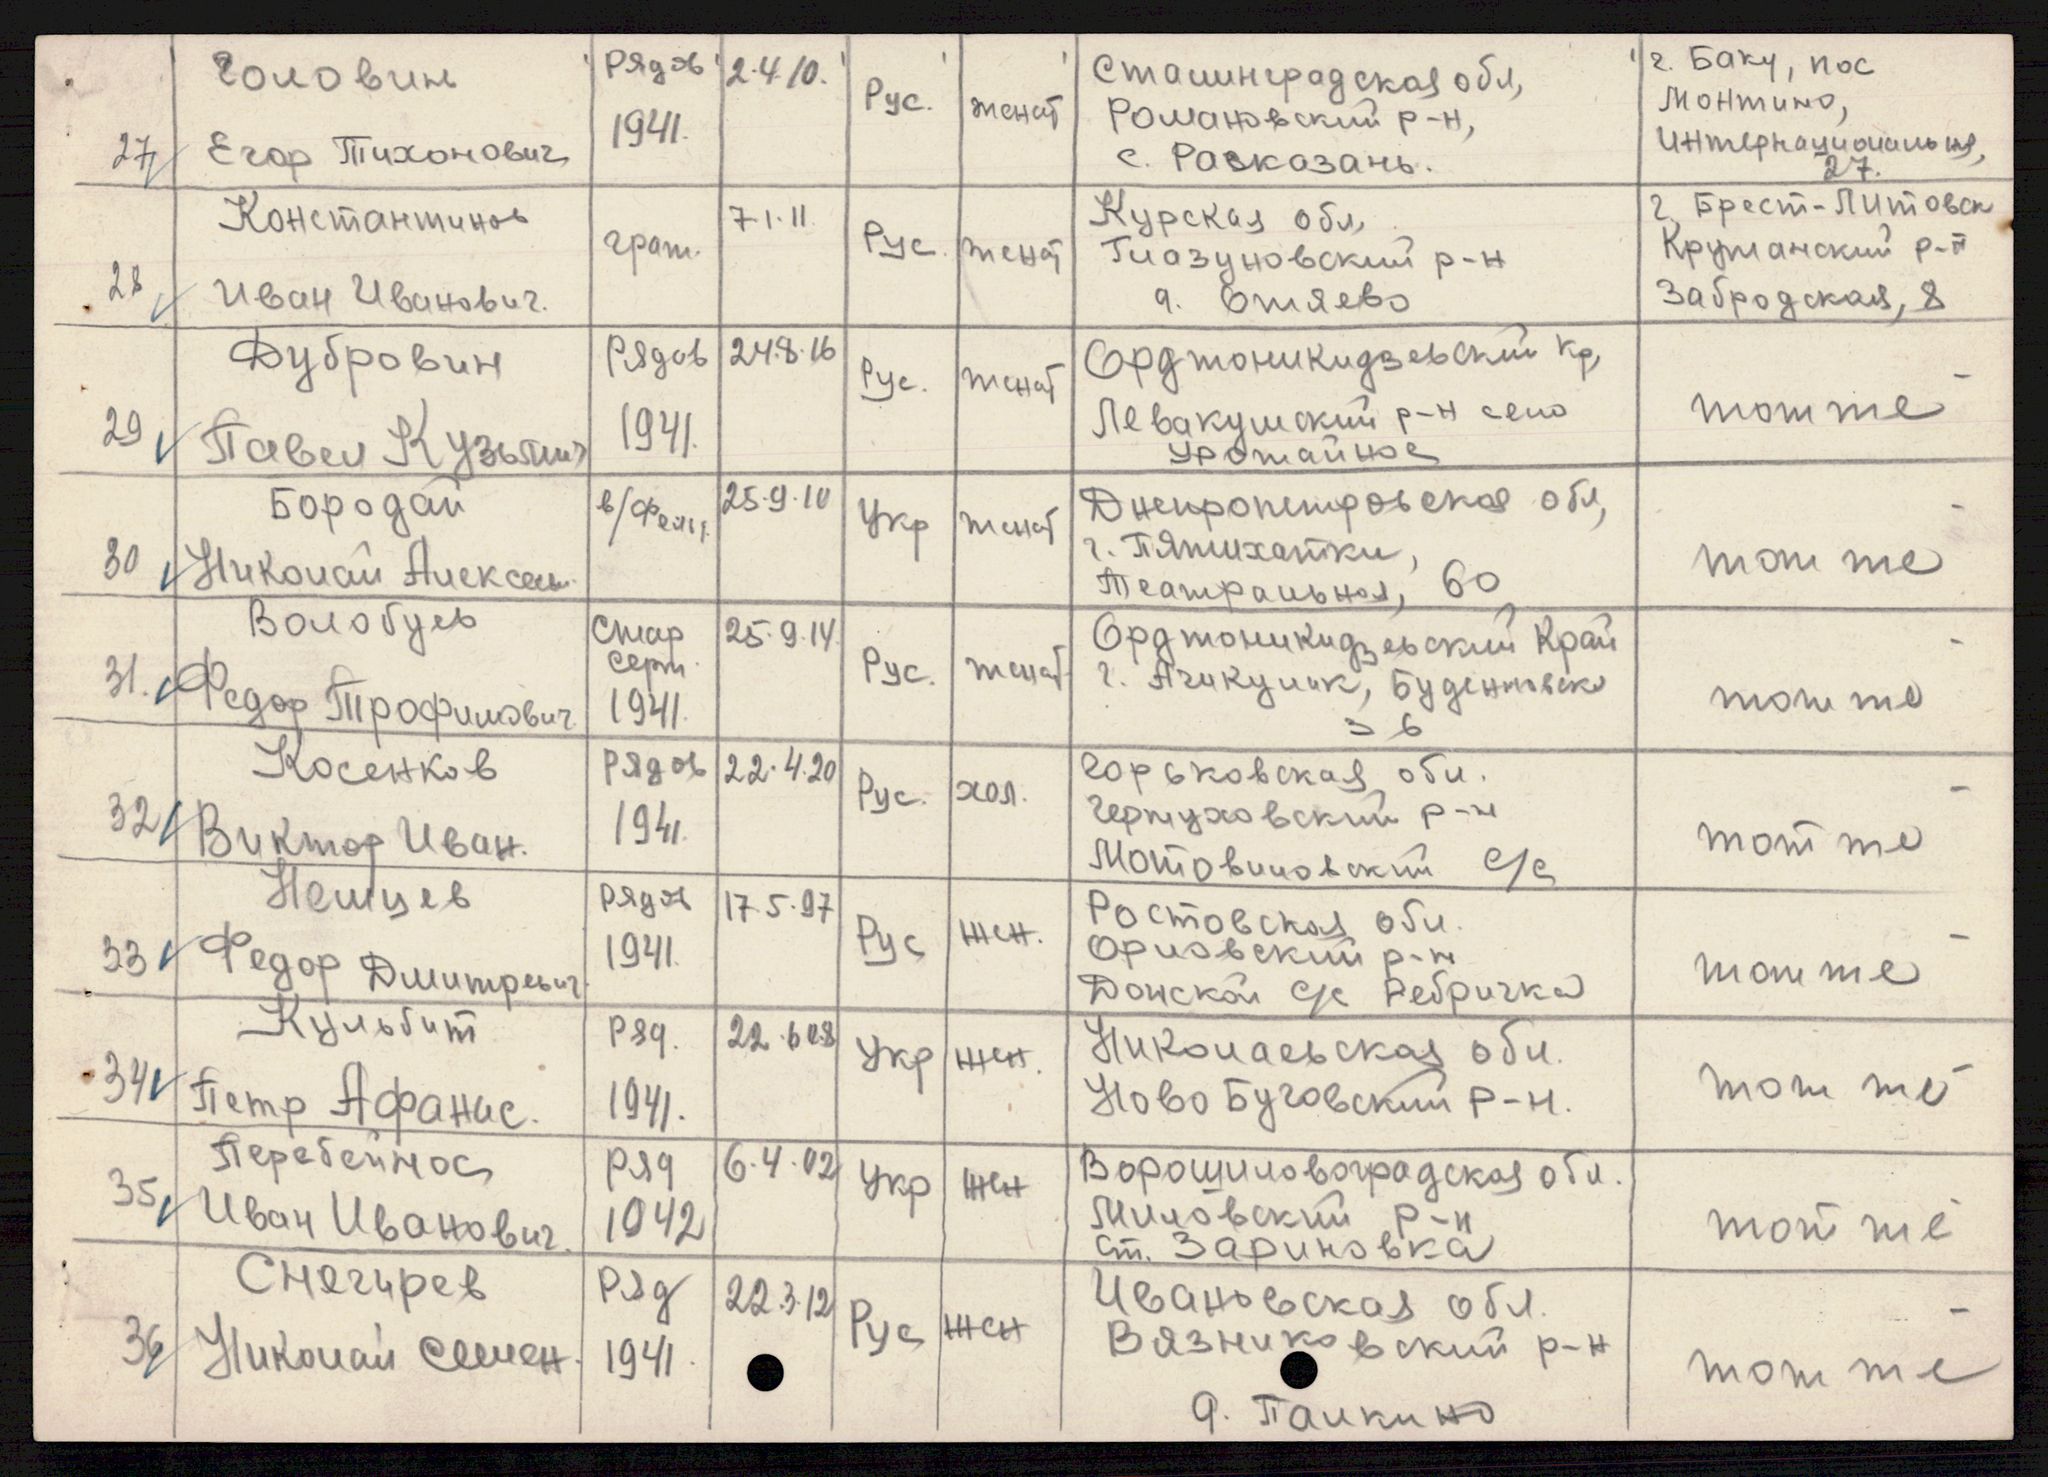 27
Головин
Егор Тихонович
Рядов
1941.
2.4.10.
Рус.
женат
Сталинградская обл,
Романовский р-н,
с. Расказань.
г. Баку, пос
Монтино,
Интернациональная,
27.
28
Константинов
Иван Иванович.
граж.
7.1.11.
Рус.
женат
Курская обл,
Глазуновский р-н
д. Отяево
г. Брест-Литовск
Кружанский р-н
Забродская, 8
29
Дубровин
Павел Кузьмич
Рядов
1941.
24.8.16
Рус.
женат
Орджоникидзевский кр,
Левакумский р-н село
Урожайное
тот же
30
Бородай
Николай Алексеев.
в/фельд.
25.9.10
Укр
женат
Днепропетровская обл,
г. Пятихатки,
Театральная, 60
тот же
31.
Волобуев
Федор Трофимович
Стар
серж.
1941.
25.9.14.
Рус.
женат
Орджоникидзевский Край
г. Ачикулак, Буденновск
36
тот же
32
Косенков
Виктор Иван.
Рядов
1941.
22.4.20
Рус.
хол.
Горьковская обл.
Чернуховский р-н
Мотовиловский с/с
тот же
33
Немцев
Федор Дмитревич.
Рядов
1941.
17.5.97
Рус
жен.
Ростовская обл.
Орловский р-н
Донской с/с Ребричка
тот же
34
Кульбит
Петр Афанас.
Ряд.
1941.
22.6.08
Укр
жен.
Николаевская обл.
Ново Буговский р-н.
тот же
35
Перебейнос
Иван Иванович.
Ряд
1942
6.4.02
Укр
жен
Ворошиловоградская обл.
Миловский р-н
ст. Зариновка
тот же
36
Снегирев
Николай Семен.
Ряд
1941.
22.3.12
Рус
жен
Ивановская обл.
Вязниковский р-н
д. Палкино
тот же